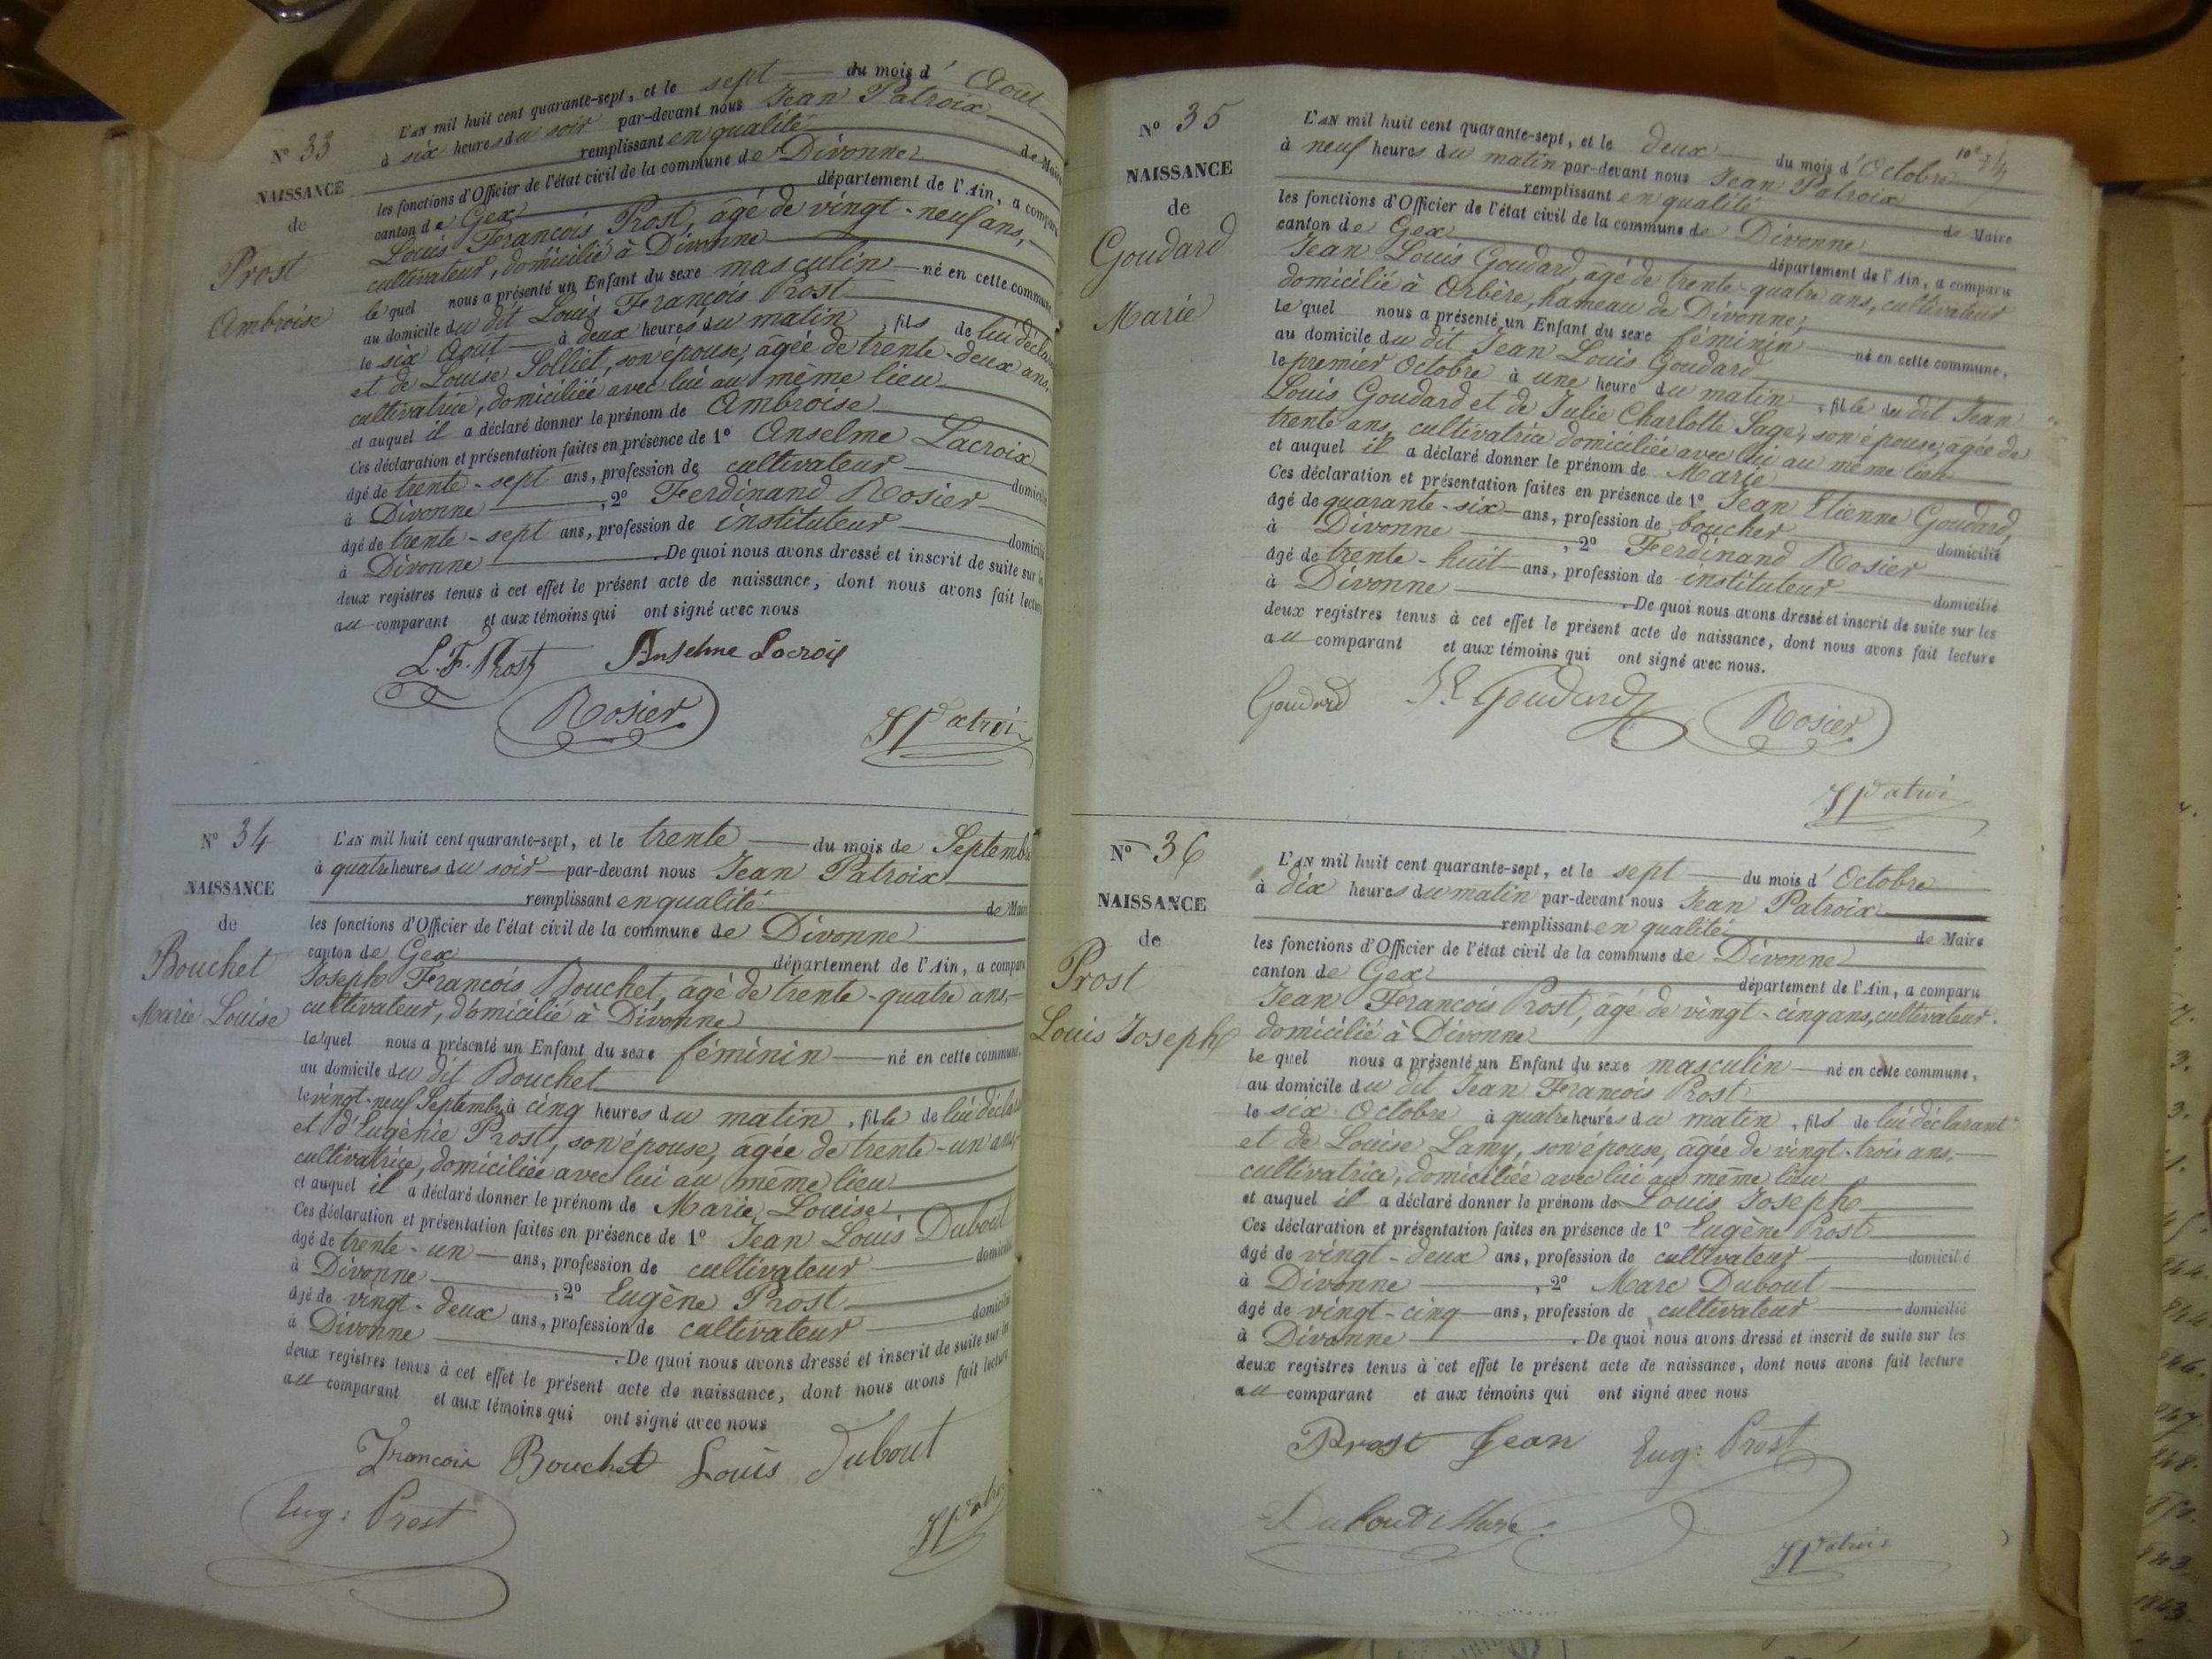 N° 33
NAISSANCE
de
Prost
Ambroise
L'AN mil huit cent quarante-sept, et le sept du mois d' Août
à six heures du soir par-devant nous Jean Patroix
remplissant en qualité de Maire
les fonctions d'Officier de l'état civil de la commune de Divonne
canton de Gex département de l'Ain, a comparu
Louis François Prost, âgé de vingt-neuf ans,
cultivateur, domicilié à Divonne
lequel nous a présenté un Enfant du sexe masculin né en cette commune,
au domicile du dit Louis François Prost
le six Août à deux heures du matin, fils de lui déclarant
et de Louise Solliet, son épouse, âgée de trente-deux ans,
cultivatrice, domiciliée avec lui au même lieu
et auquel il a déclaré donner le prénom de Ambroise
Ces déclaration et présentation faites en présence de 1° Anselme Lacroix
âgé de trente-sept ans, profession de cultivateur domicilié
à Divonne, 2° Ferdinand Rosier
âgé de trente-sept ans, profession de instituteur domicilié
à Divonne. De quoi nous avons dressé et inscrit de suite sur les
deux registres tenus à cet effet le présent acte de naissance, dont nous avons fait lecture
au comparant et aux témoins qui ont signé avec nous
L. F. Prost Anselme Lacroix
Rosier
J Patroix
N° 34
NAISSANCE
de
Bouchet
Marie Louise
L'AN mil huit cent quarante-sept, et le trente du mois de Septembre
à quatre heures du soir par-devant nous Jean Patroix
remplissant en qualité de Maire
les fonctions d'Officier de l'état civil de la commune de Divonne
canton de Gex département de l'Ain, a comparu
Joseph François Bouchet, âgé de trente-quatre ans,
cultivateur, domicilié à Divonne
lequel nous a présenté un Enfant du sexe féminin né en cette commune,
au domicile du dit Bouchet
le vingt-neuf Septembre à cinq heures du matin, fille de lui déclarant
et d'Eugénie Prost, son épouse, âgée de trente-un ans,
cultivatrice, domiciliée avec lui au même lieu
et auquel il a déclaré donner le prénom de Marie Louise
Ces déclaration et présentation faites en présence de 1° Jean Louis Dubout
âgé de trente-un ans, profession de cultivateur domicilié
à Divonne, 2° Eugène Prost
âgé de vingt-deux ans, profession de cultivateur domicilié
à Divonne. De quoi nous avons dressé et inscrit de suite sur les
deux registres tenus à cet effet le présent acte de naissance, dont nous avons fait lecture
au comparant et aux témoins qui ont signé avec nous
François Bouchet Louis Dubout
Eug: Prost
J Patroix
N° 35
NAISSANCE
de
Goudard
Marie
L'AN mil huit cent quarante-sept, et le deux du mois d'Octobre
à neuf heures du matin par-devant nous Jean Patroix
remplissant en qualité de Maire
les fonctions d'Officier de l'état civil de la commune de Divonne
canton de Gex département de l'Ain, a comparu
Jean Louis Goudard, âgé de trente-quatre ans, cultivateur
domicilié à Arbère, hameau de Divonne,
lequel nous a présenté un Enfant du sexe féminin né en cette commune,
au domicile du dit Jean Louis Goudard
le premier Octobre à une heure du matin, fille du dit Jean
Louis Goudard et de Julie Charlotte Sage, son épouse, âgée de
trente ans, cultivatrice domiciliée avec lui au même lieu
et auquel il a déclaré donner le prénom de Marie
Ces déclaration et présentation faites en présence de 1° Jean Etienne Goudard,
âgé de quarante-six ans, profession de boucher domicilié
à Divonne, 2° Ferdinand Rosier
âgé de trente-huit ans, profession de instituteur domicilié
à Divonne. De quoi nous avons dressé et inscrit de suite sur les
deux registres tenus à cet effet le présent acte de naissance, dont nous avons fait lecture
au comparant et aux témoins qui ont signé avec nous.
Goudard J. E. Goudard Rosier
J Patroix
N° 36
NAISSANCE
de
Prost
Louis Joseph
L'AN mil huit cent quarante-sept, et le sept du mois d'Octobre
à dix heures du matin par-devant nous Jean Patroix
remplissant en qualité de Maire
les fonctions d'Officier de l'état civil de la commune de Divonne
canton de Gex département de l'Ain, a comparu
Jean François Prost, âgé de vingt-cinq ans, cultivateur.
domicilié à Divonne
lequel nous a présenté un Enfant du sexe masculin né en cette commune,
au domicile du dit Jean François Prost
le six Octobre à quatre heures du matin, fils de lui déclarant
et de Louise Lamy, son épouse, âgée de vingt-trois ans,
cultivatrice, domiciliée avec lui au même lieu
et auquel il a déclaré donner le prénom de Louis Joseph
Ces déclaration et présentation faites en présence de 1° Eugène Prost
âgé de vingt-deux ans, profession de cultivateur domicilié
à Divonne, 2° Marc Dubout
âgé de vingt-cinq ans, profession de cultivateur domicilié
à Divonne. De quoi nous avons dressé et inscrit de suite sur les
deux registres tenus à cet effet le présent acte de naissance, dont nous avons fait lecture
au comparant et aux témoins qui ont signé avec nous
Prost Jean Eug: Prost
Dubout Marc
J Patroix